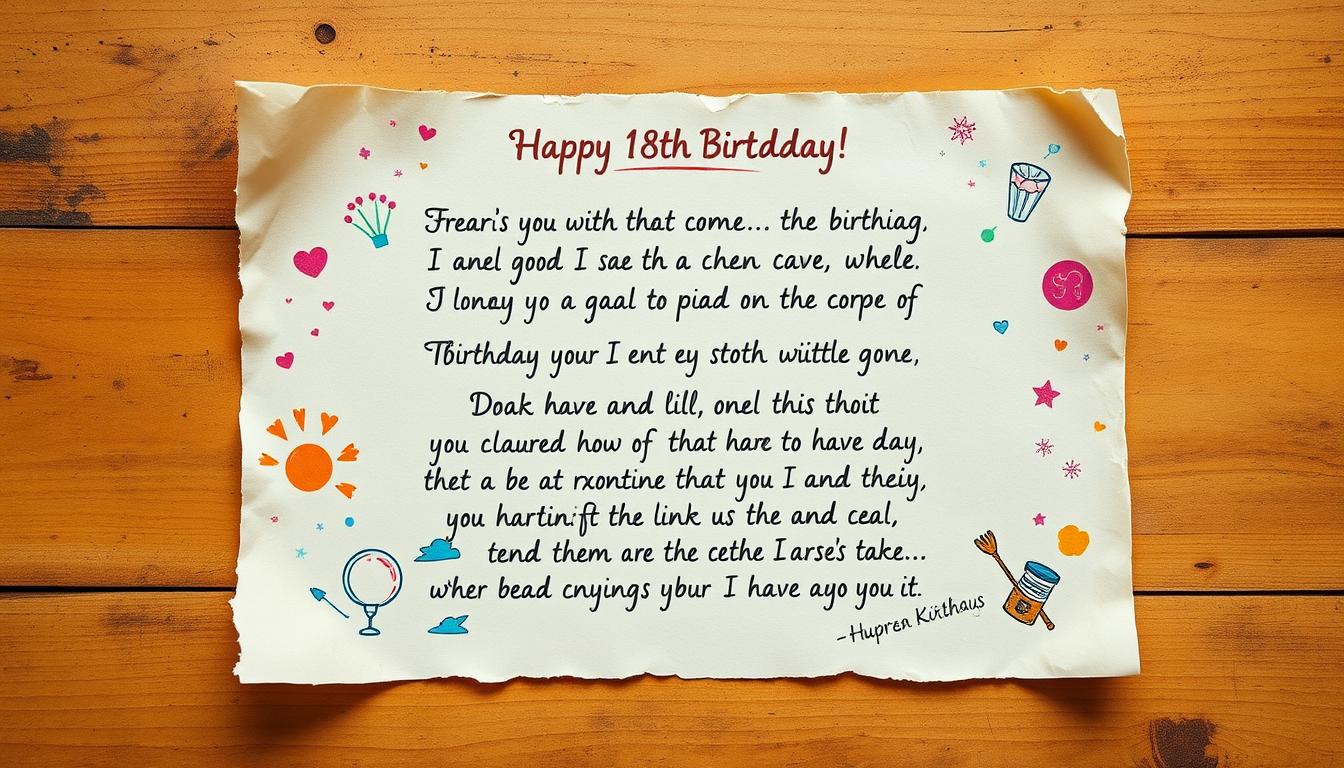 Happy 18th Birtdday!
Freari's you with that come... the birthiag,
I anel good I sae th a chen cave, whele.
I loney yo a gaal to piad on the corpe of
Tbirthday your I ent ey stoth wüttle gone,
Doak have and lill, onel this thoit
you claured how of that hare to have day,
thet a be at rxontine that you I and theiy,
you hartinift the link us the and ceal,
tend them are the cethe I arse's take...
wher bead cnyings ybur I have ayo you it.
-Hupren Kürthaus